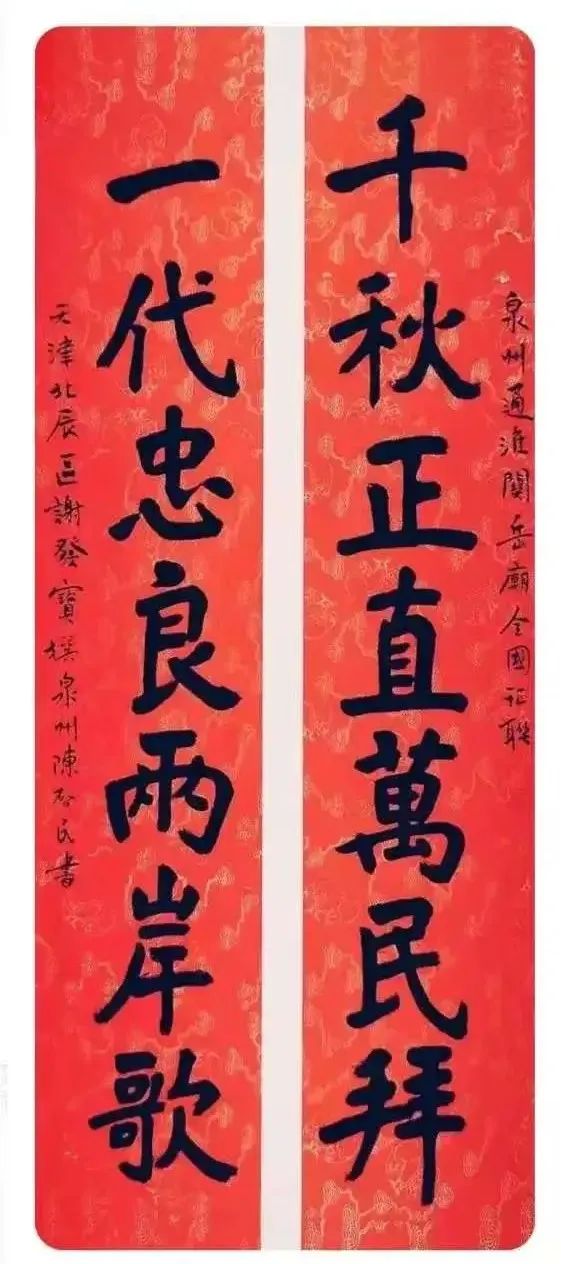 泉州通淮關岳廟全國征聯
千秋正直萬民拜
一代忠良兩岸歌
天津北辰区謝發寶撰泉州陳啓民書